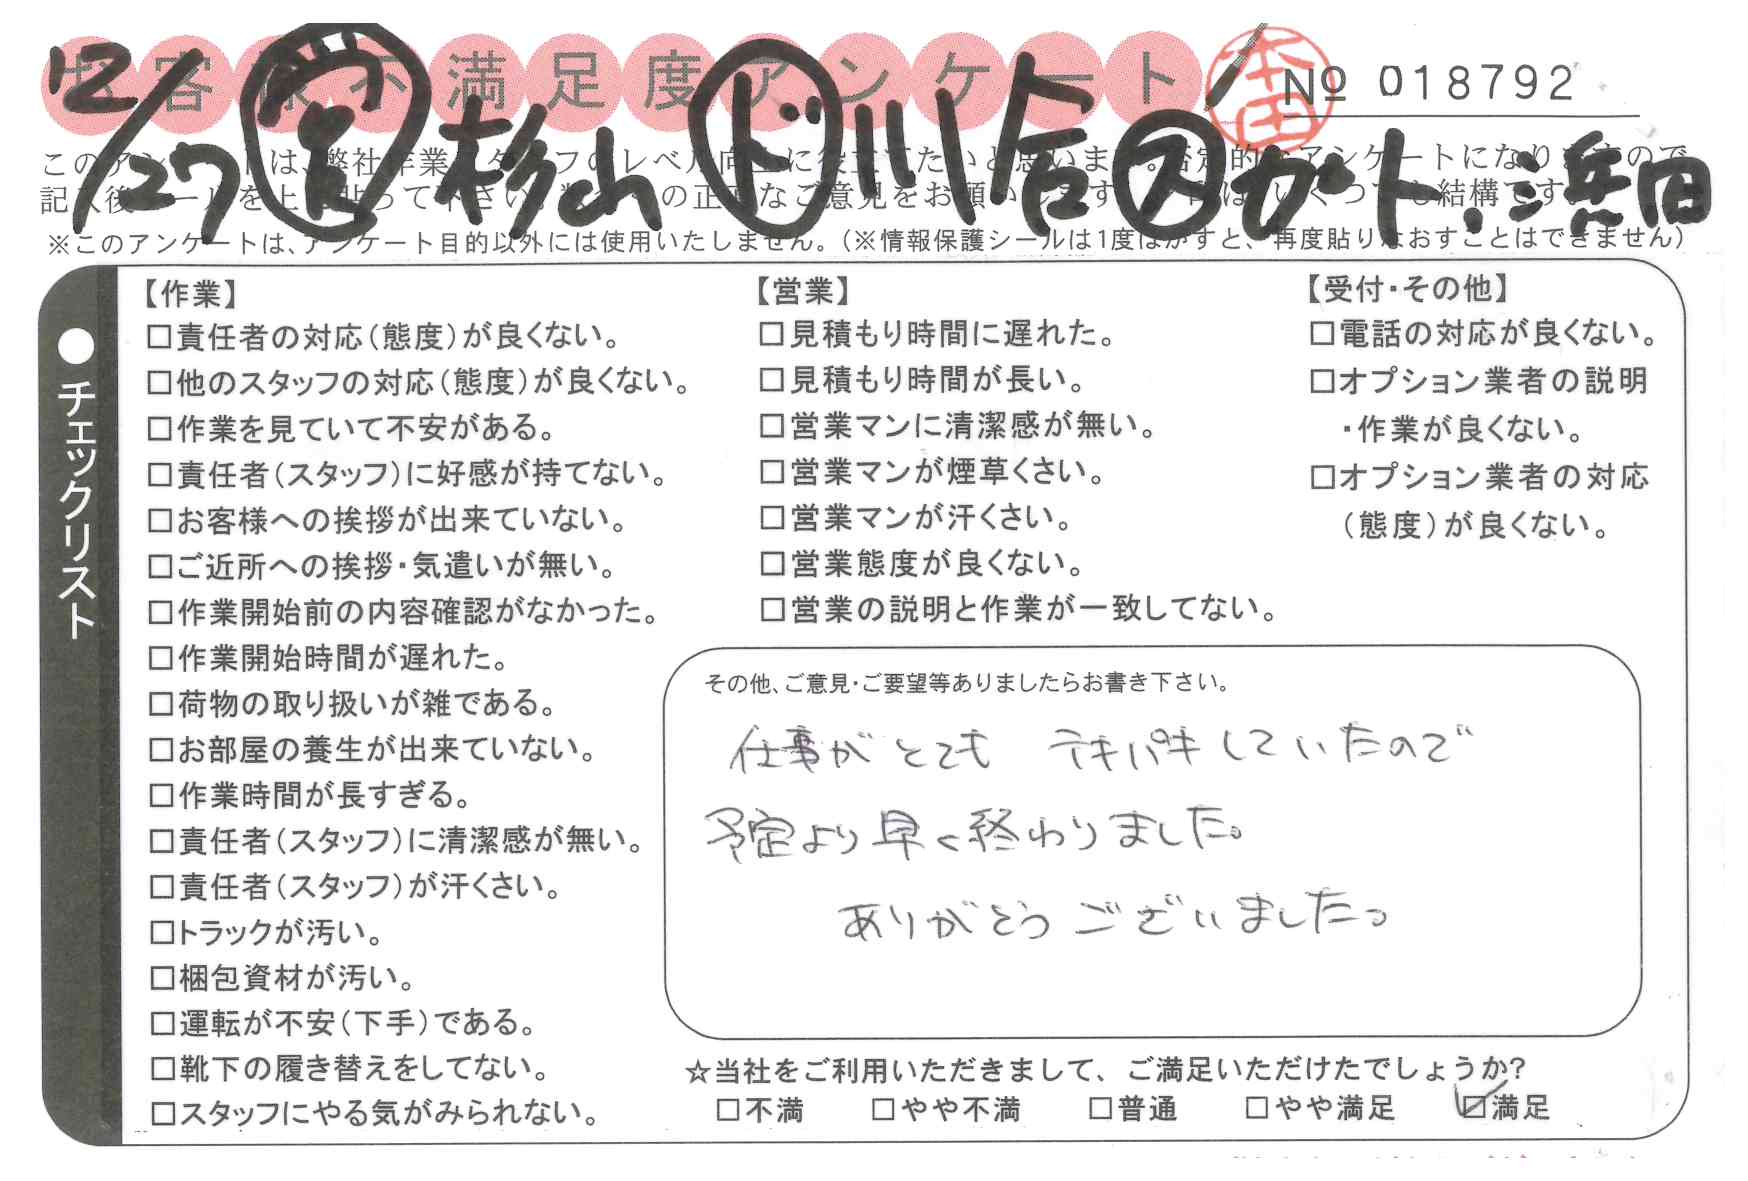 お客様不満足度アンケート
本田
No 018792
12/27 営 杉山 ド 川合 ス ガート.浜田
このアンケートは、弊社作業スタッフのレベル向上に役立てたいと思います。否定的なアンケートになりますので
※このアンケートは、アンケート目的以外には使用いたしません。(※情報保護シールは1度はがすと、再度貼りなおすことはできません)
●チェックリスト
【作業】
□責任者の対応(態度)が良くない。
□他のスタッフの対応(態度)が良くない。
□作業を見ていて不安がある。
□責任者(スタッフ)に好感が持てない。
□お客様への挨拶が出来ていない。
□ご近所への挨拶・気遣いが無い。
□作業開始前の内容確認がなかった。
□作業開始時間が遅れた。
□荷物の取り扱いが雑である。
□お部屋の養生が出来ていない。
□作業時間が長すぎる。
□責任者(スタッフ)に清潔感が無い。
□責任者(スタッフ)が汗くさい。
□トラックが汚い。
□梱包資材が汚い。
□運転が不安(下手)である。
□靴下の履き替えをしてない。
□スタッフにやる気がみられない。
【営業】
□見積もり時間に遅れた。
□見積もり時間が長い。
□営業マンに清潔感が無い。
□営業マンが煙草くさい。
□営業マンが汗くさい。
□営業態度が良くない。
□営業の説明と作業が一致してない。
【受付・その他】
□電話の対応が良くない。
□オプション業者の説明
・作業が良くない。
□オプション業者の対応
(態度)が良くない。
その他、ご意見・ご要望等ありましたらお書き下さい。
仕事がとても テキパキしていたので
予定より早く終わりました。
ありがとうございました。
☆当社をご利用いただきまして、ご満足いただけたでしょうか?
□不満 □やや不満 □普通 □やや満足 ☑満足